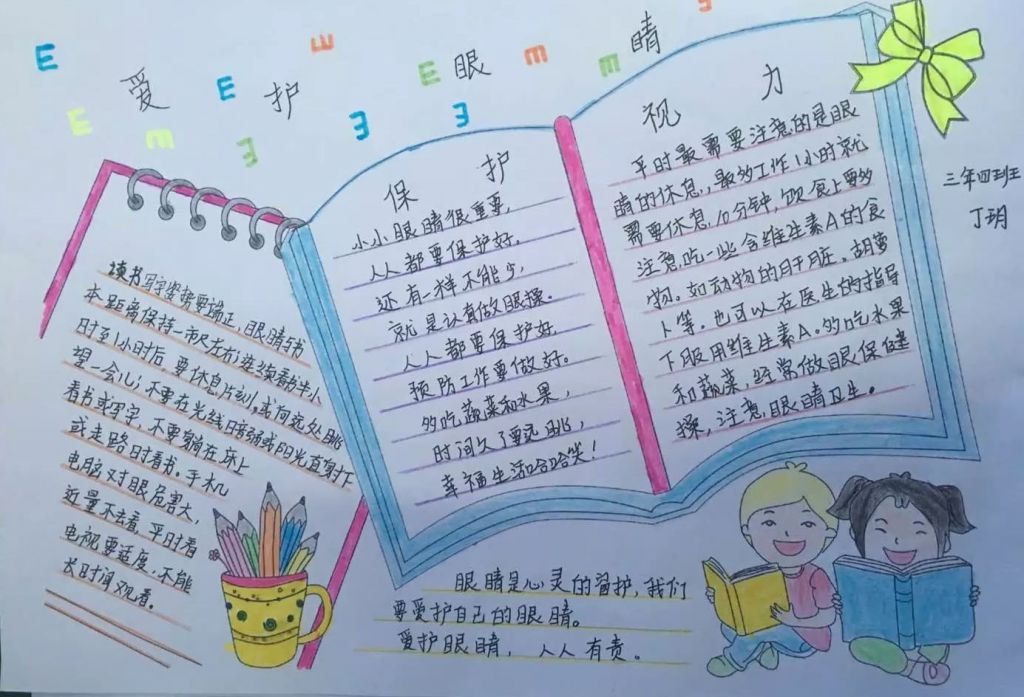 E E E E E E E E E E E E
爱护眼睛
保护
视力
三年四班
丁玥
读书写字姿势要端正,眼睛与书
本距离保持一市尺左右;连续看书半小
时至1小时后,要休息片刻,或向远处眺
望一会儿;不要在光线暗弱或阳光直射下
看书或写字,不要躺在床上
或走路时看书。手机
电脑对眼危害大,
近量不去看,平时看
电视要适度,不能
长时间观看。
小小眼睛很重要,
人人都要保护好。
还有一样不能少,
就是认真做眼操.
人人都要保护好
预防工作要做好。
多吃蔬菜和水果,
时间久了要远眺,
幸福生活哈哈笑!
平时最需要注意的是眼
睛的休息,最多工作1小时就
需要休息10分钟,饮食上要多
注意吃一些含维生素A的食
物。如动物的肝脏、胡萝
卜等。也可以在医生的指导
下服用维生素A。多吃水果
和蔬菜,经常做眼保健
操,注意眼睛卫生。
眼睛是心灵的窗护,我们
要爱护自己的眼睛。
爱护眼睛,人人有责。